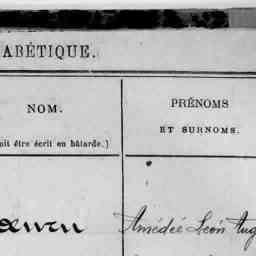 ABÉTIQUE.
NOM.
PRÉNOMS
ET SURNOMS.
oit être écrit en bâtarde.)
Amédée Léon Aug